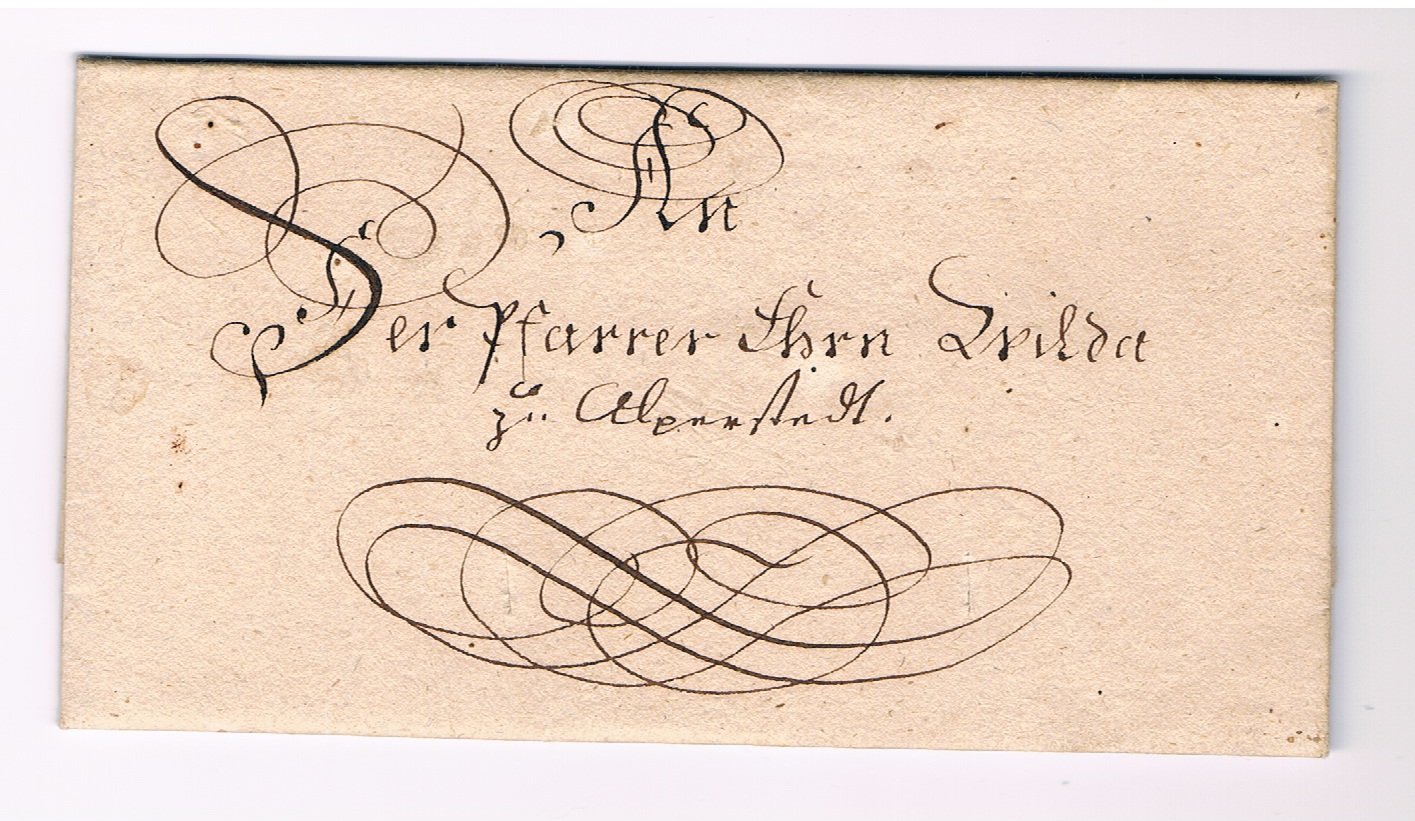 An
Der Pfarrer Ehrn Wilda
zu Alperstedt.